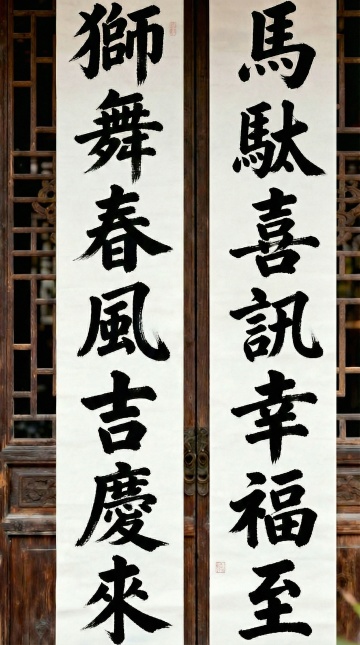 馬馱喜訊幸福至
獅舞春風吉慶來